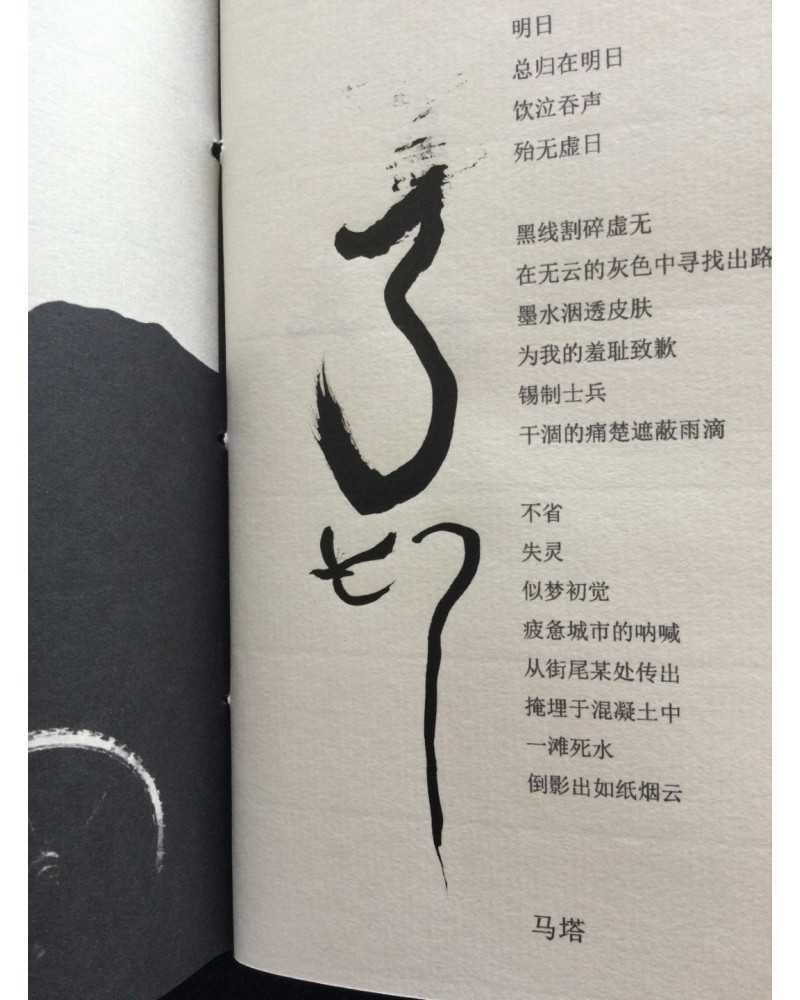 明日
总归在明日
饮泣吞声
殆无虚日
黑线割碎虚无
在无云的灰色中寻找出路
墨水洇透皮肤
为我的羞耻致歉
锡制士兵
干涸的痛楚遮蔽雨滴
不省
失灵
似梦初觉
疲惫城市的呐喊
从街尾某处传出
掩埋于混凝土中
一滩死水
倒影出如纸烟云
马塔